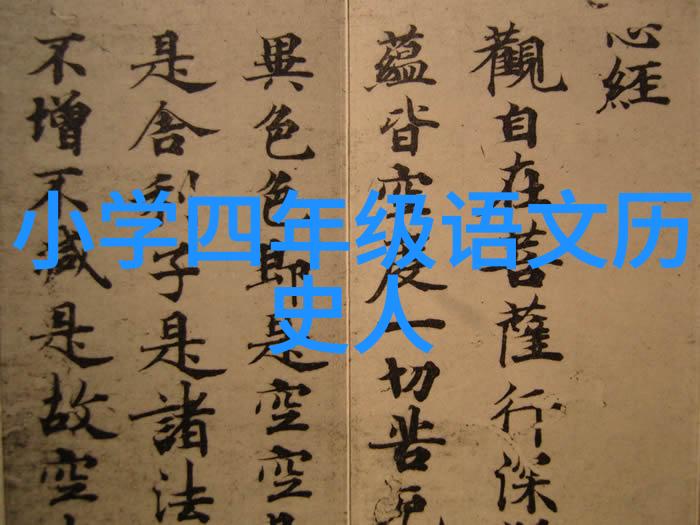 小学四年级语文历
史人
心經
觀自在菩薩行深
蘊皆空度一切苦厄
異色色即是空空
是舍利子是諸法
不增不減是故空